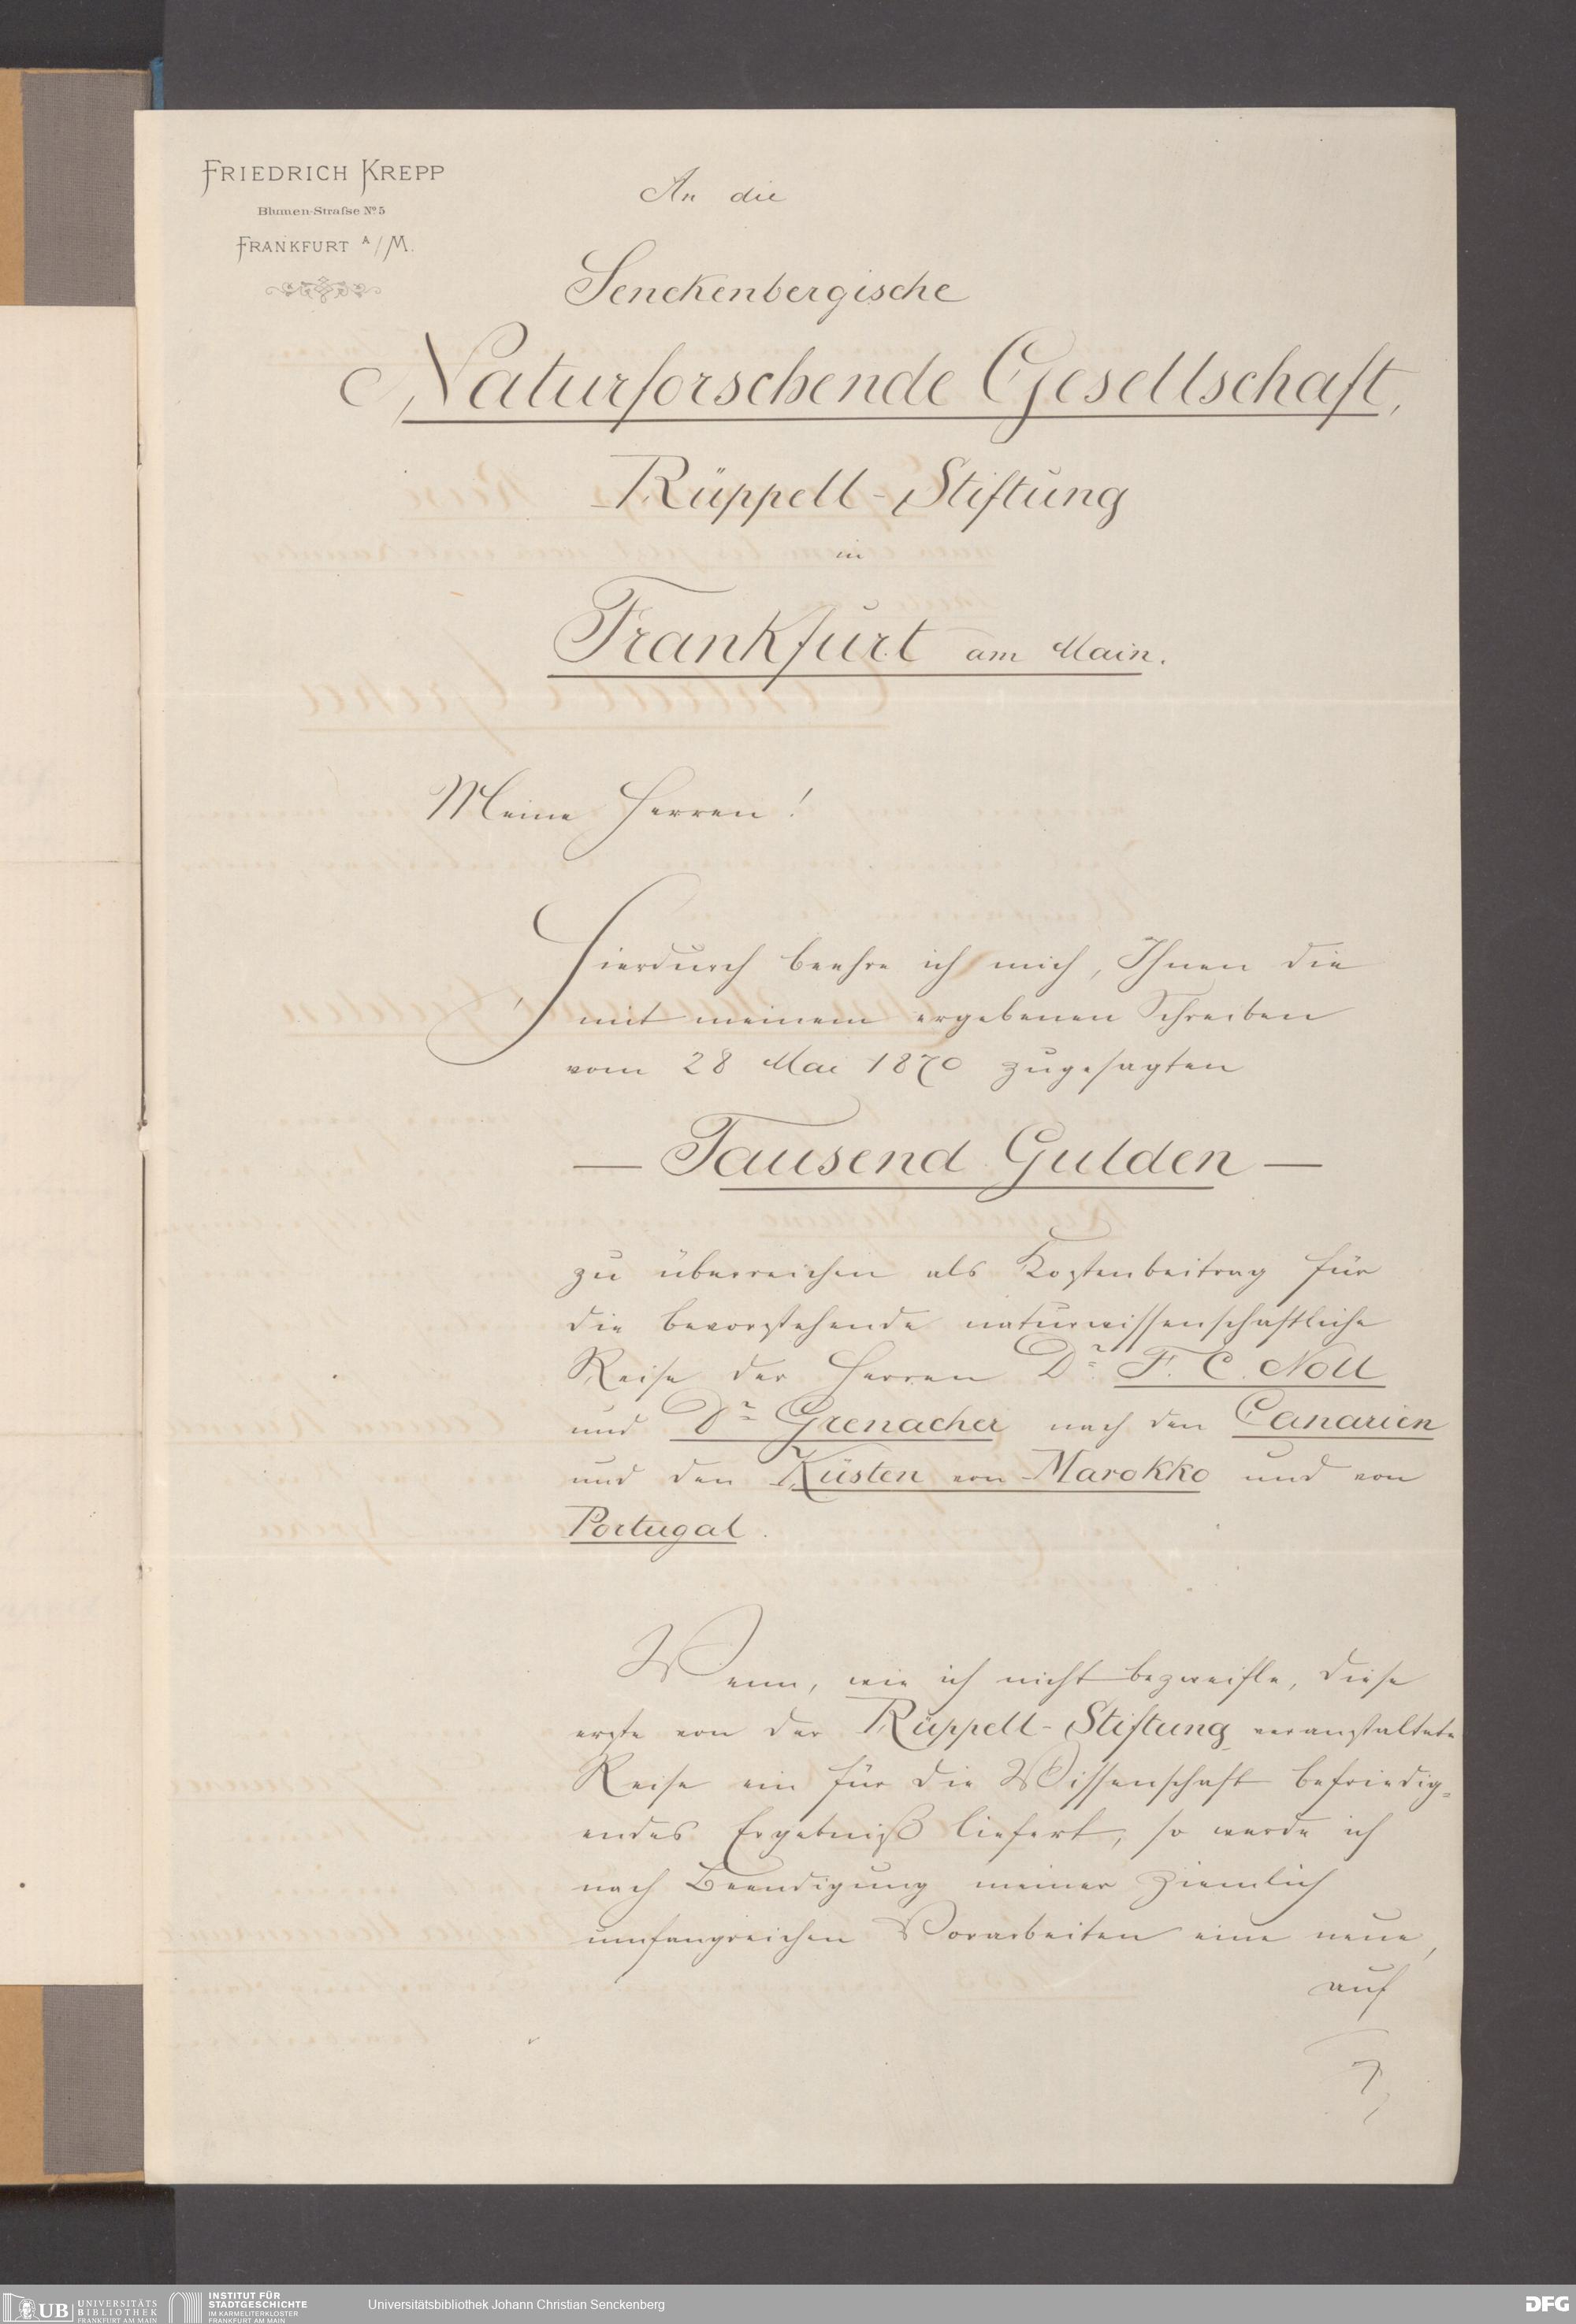 FRIEDRICH KREPP
Blumen-Straſse Nº 5
FRANKFURT A/M.
An die
Senckenbergische
Naturforschende Gesellschaft,
Rüppell-Stiftung
in
Frankfurt am Main.
Meine Herren!
Hierdurch beehre ich mich, Ihnen die
mit meinem ergebenen Schreiben
vom 28 Mai 1870 zugesagten
— Tausend Gulden —
zu überreichen als Kostenbeitrag für
die bevorstehende naturwissenschaftliche
Reise der Herren Dr. F. C. Noll
und Dr Grenacher nach den Canarien
und den Küsten von Marokko und von
Portugal.
Wenn, wie ich nicht bezweifle, diese
erste von der Rüppell-Stiftung veranstaltete
Reise ein für die Wissenschaft befriedig-
endes Ergebniß liefert, so werde ich
nach Beendigung meiner ziemlich
umfangreichen Vorarbeiten eine neue,
auf
UB UNIVERSITÄTS
BIBLIOTHEK
FRANKFURT AM MAIN
INSTITUT FÜR
STADTGESCHICHTE
IM KARMELITERKLOSTER
FRANKFURT AM MAIN
Universitätsbibliothek Johann Christian Senckenberg
DFG